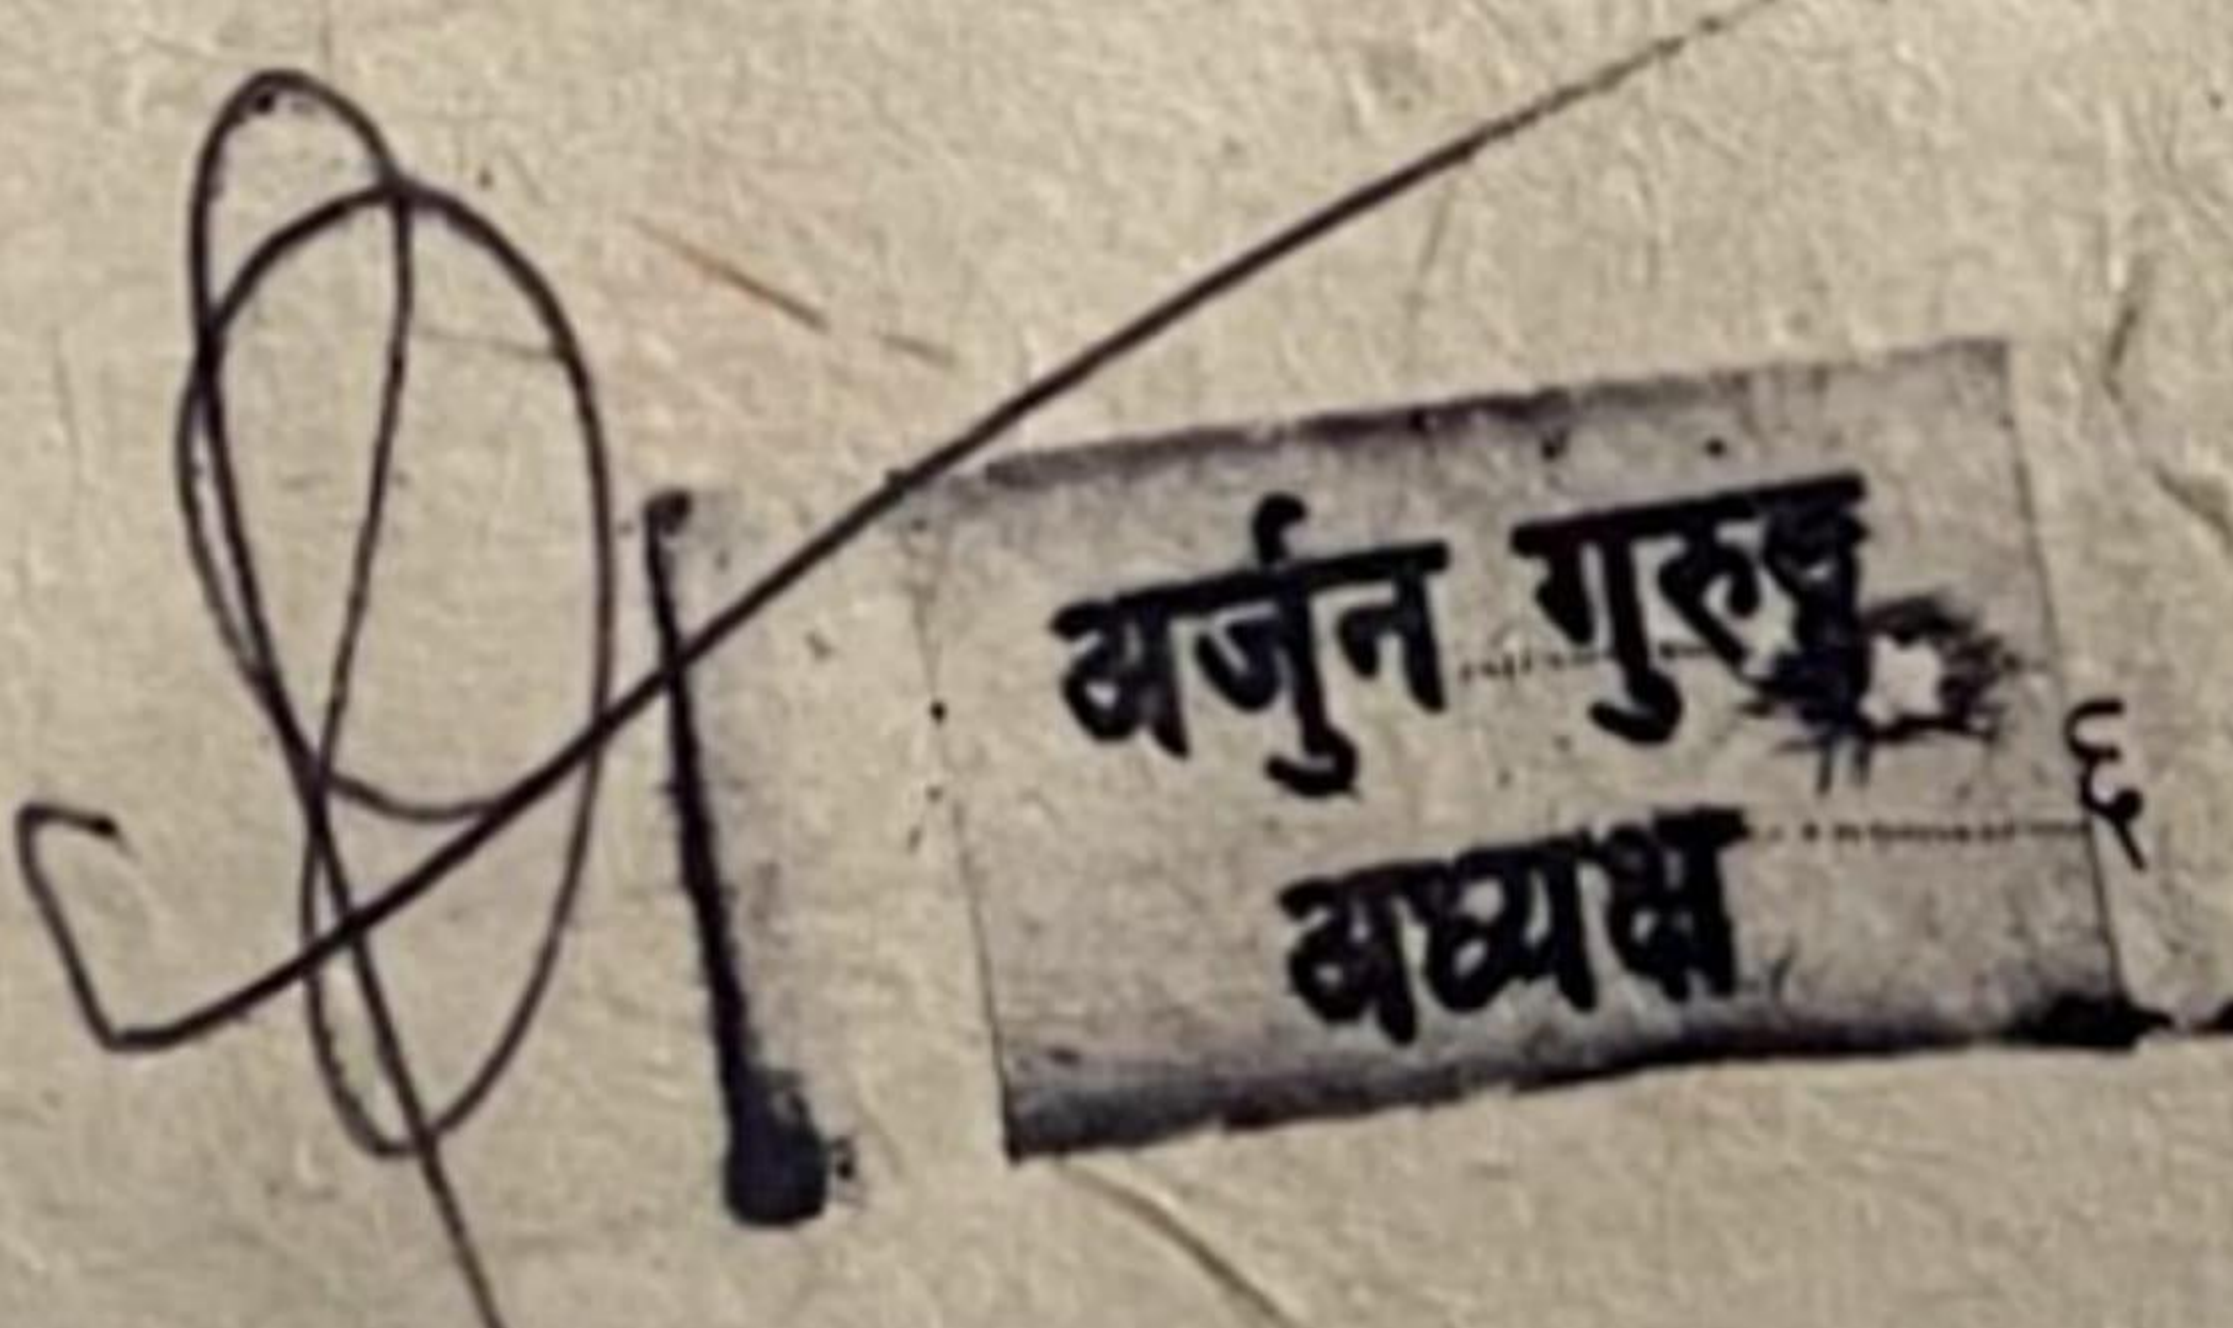 अर्जुन गुरुङ
अध्यक्ष